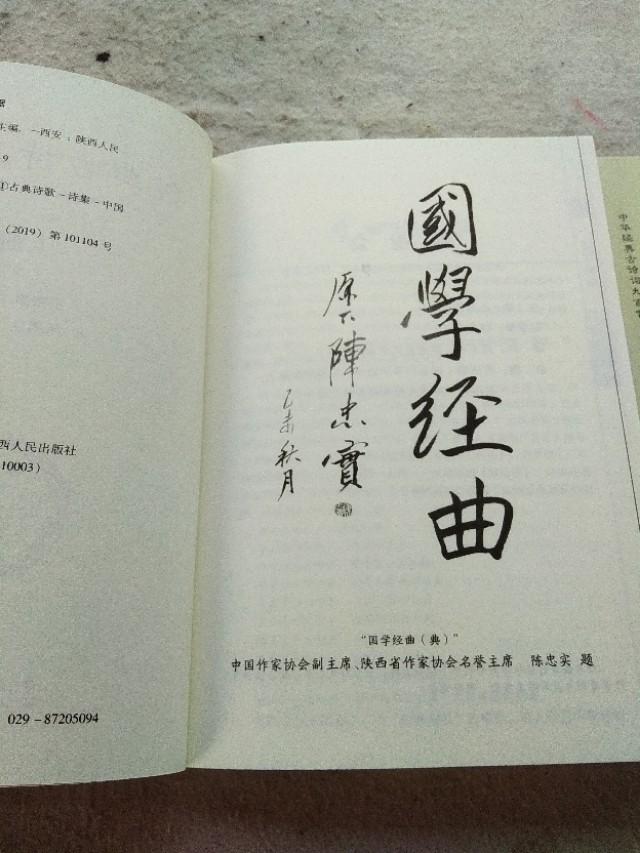 主编. —西安：陕西人民
9
①古典诗歌－诗集－中国
(2019) 第 101104 号
西人民出版社
10003)
029－87205094
國學经曲
原下陳忠實
乙未秋月
“国学经曲（典）”
中国作家协会副主席、陕西省作家协会名誉主席 陈忠实 题
中华经典古诗词大